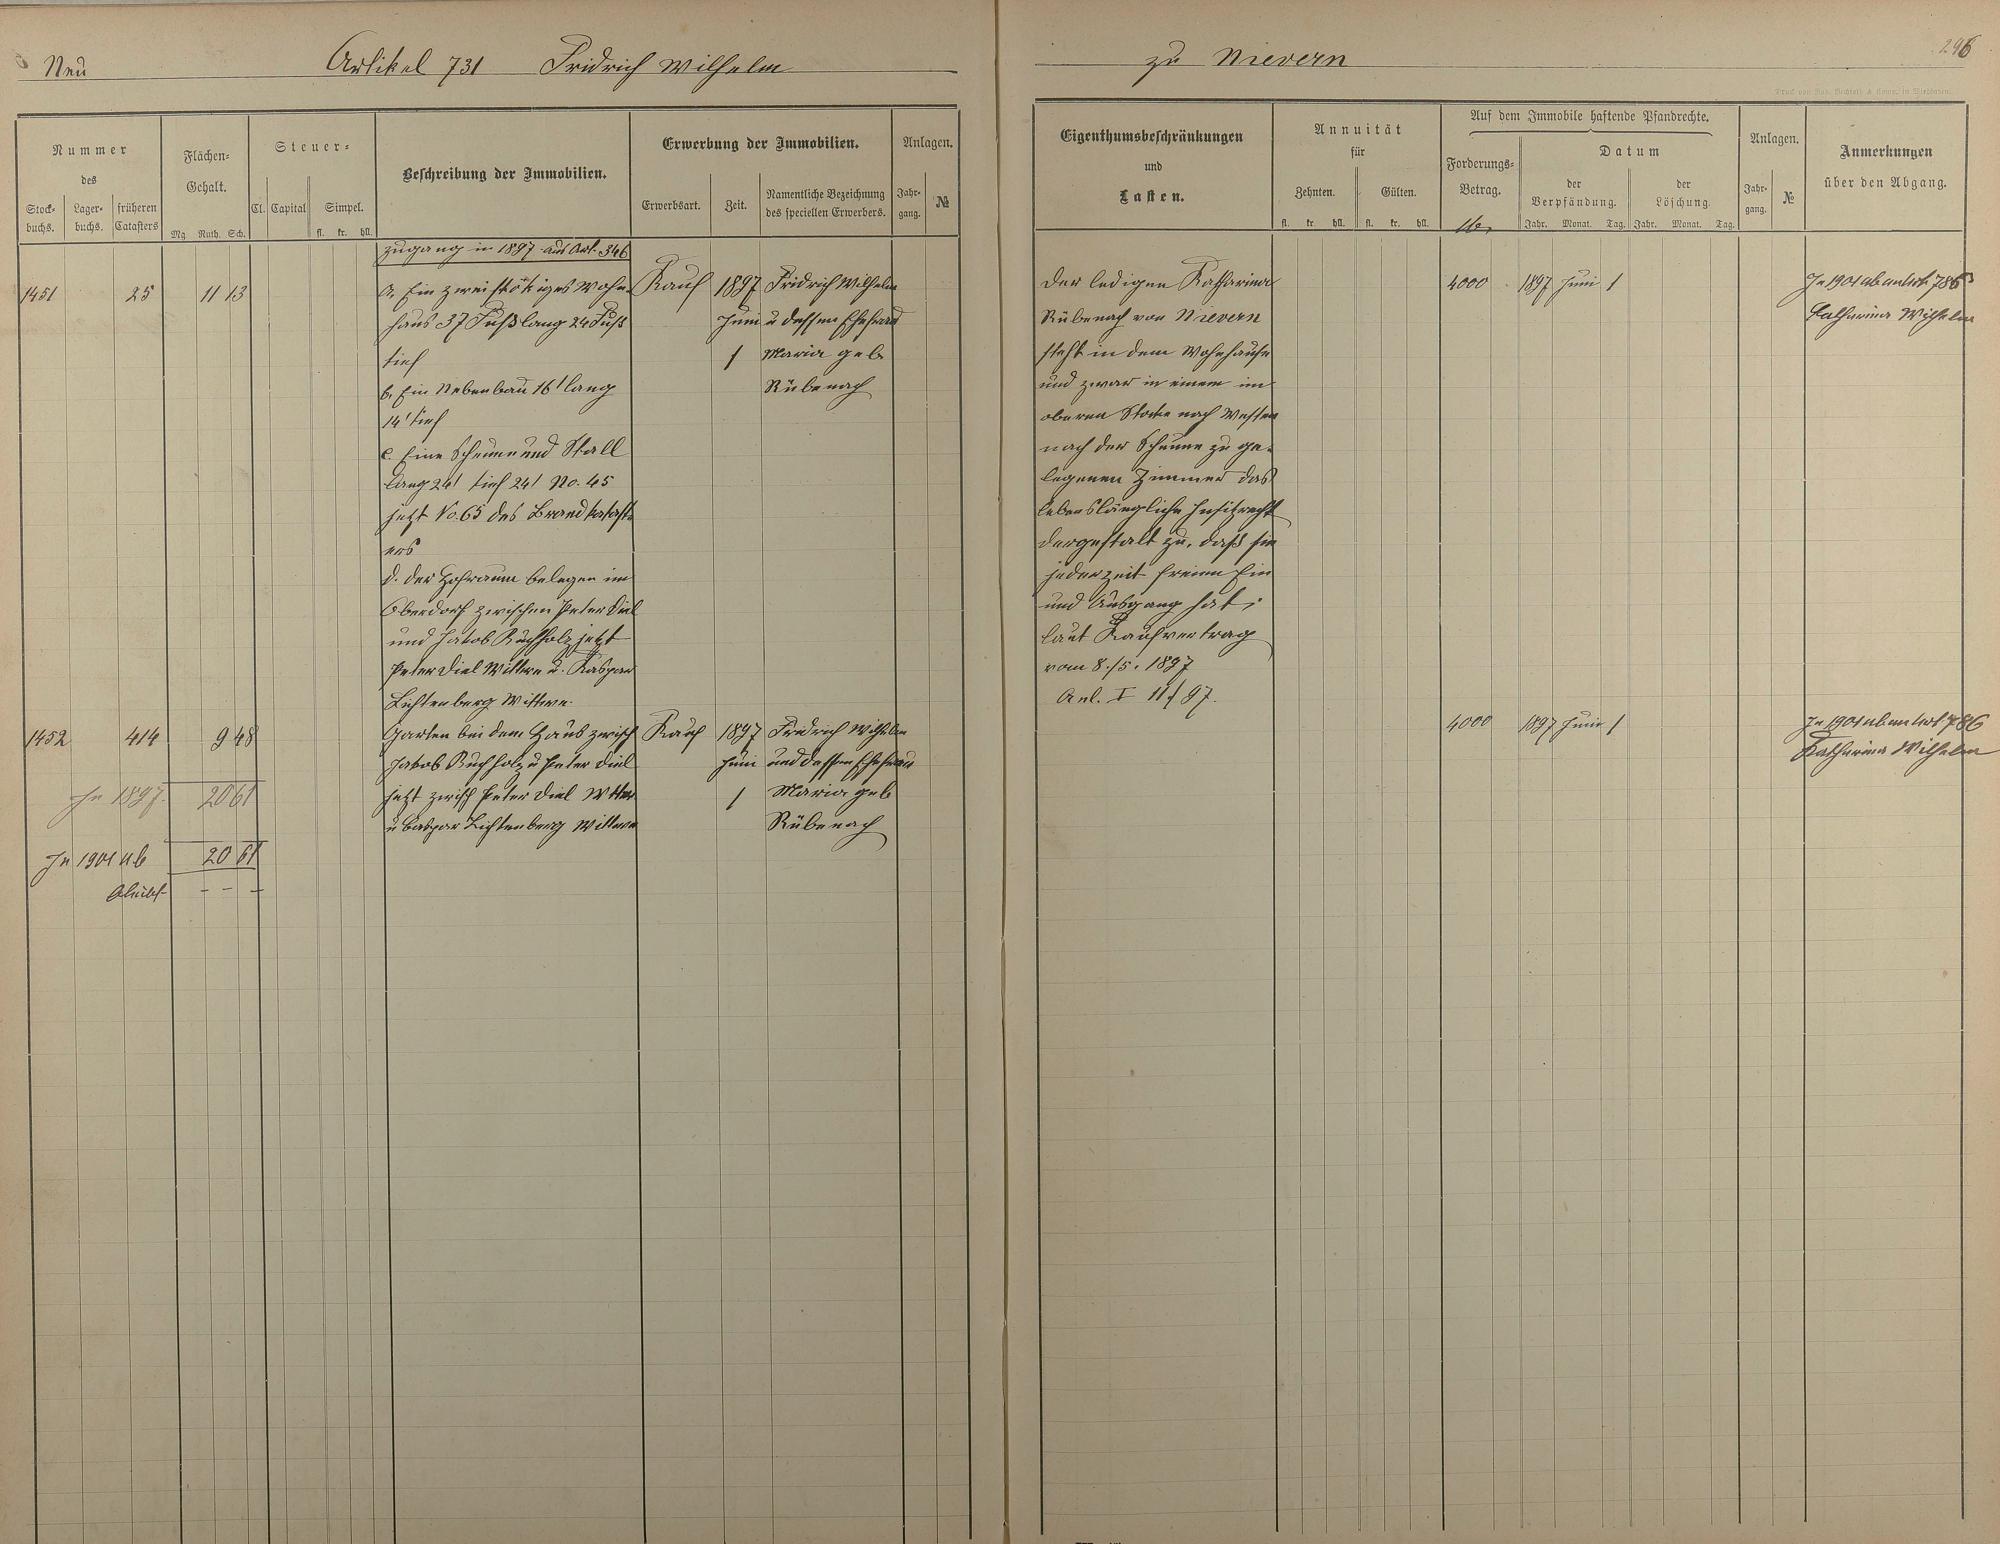 Neu
Artikel 731 Fridrich Wilhelm
zu Nievern
296
Nummer
des
Stock-
buchs.
Lager-
buchs.
früheren
Catasters
Flächen-
Gehalt.
Mg. Ruth. Sch.
Steuer-
Cl. Capital Simpel.
fl. kr. hll.
Beschreibung der Immobilien.
Erwerbung der Immobilien.
Erwerbsart. Zeit.
Namentliche Bezeichnung
des speciellen Erwerbers.
Anlagen.
Jahr-
gang.
№
Zugang in 1897 aus Art. 346
1451 25 11 13
a. Ein zweistökiges Wohn-
haus 37 Fuß lang 24 Fuß
tief
b. Ein Nebenbau 16' lang
14' tief
c. Eine Scheune und Stall
lang 24' tief 24' No. 45
jetzt No. 65 des Brandkatast-
ers
d. der Hofraum belegen im
Oberdorf zwischen Peter Diel
und Jakob Buchholz jetzt
Peter Diel Wittwe u. Kaspar
Lichtenberg Wittwe.
Kauf
1897
Juni
1
Fridrich Wilhelm
u dessen Ehefrau
Maria geb
Rübenach
1452 414 9 48
Garten bei dem Haus zwisch
Jakob Buchholz u Peter Diel
jetzt zwisch Peter Diel Wttwe
u Caspar Lichtenberg Wittwe
Kauf
1897
Juni
1
Fridrich Wilhelm
und dessen Ehefrau
Maria geb
Rübenach
In 1897. 20 61
In 1901 ab 20 61
Bleibt - - -
Eigenthumsbeschränkungen
und
Lasten.
Annuität
für
Zehnten. Gülten.
fl. kr. hll. fl. kr. hll.
Auf dem Immobile haftende Pfandrechte.
Forderungs-
Betrag.
Datum
der
Verpfändung.
der
Löschung.
Jahr. Monat. Tag. Jahr. Monat. Tag.
Anlagen.
Jahr-
gang.
№
Anmerkungen
über den Abgang.
Der ledigen Katharina
Rübenach von Nievern
steht in dem Wohnhause
und zwar in einem im
oberen Stocke nach Westen
nach der Scheune zu ge-
legenen Zimmer das
lebenslängliche Insitzrecht
dergestalt zu, daß sie
jederzeit freien Ein
und Ausgang hat;
laut Kaufvertrag
vom 8./5. 1897
Anl. I 11/97.
4000 1897 Juni 1
In 1901 ab an Art. 786
Catharina Wilhelm
4000 1897 Juni 1
In 1901 ab an Art 786
Katharina Wilhelm